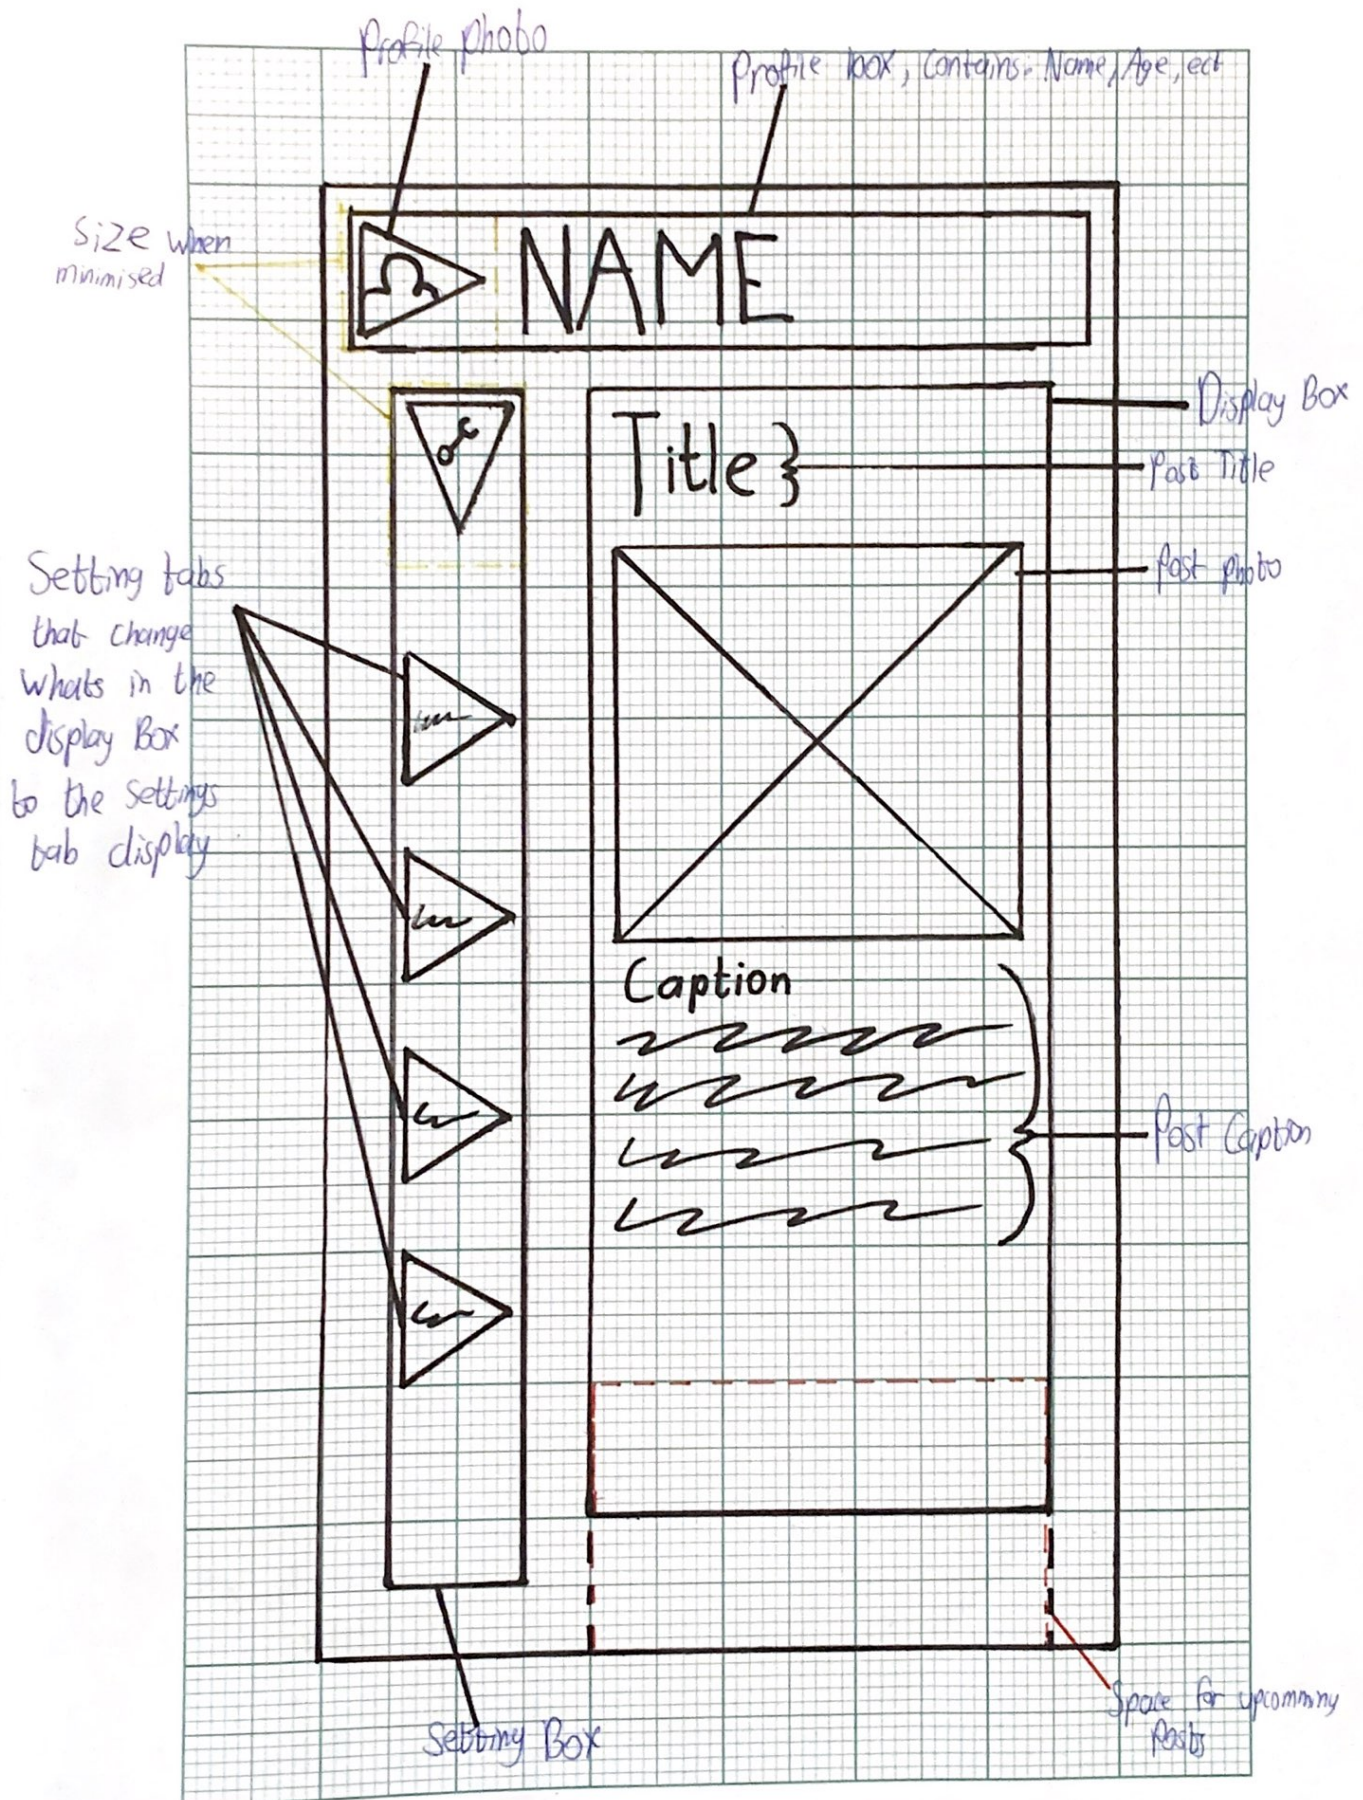 Profile photo
Profile box, Contains: Name, Age, ect
Size when
minimised
NAME
Display Box
Title
Post Title
Post photo
Setting tabs
that change
whats in the
display Box
to the settings
tab display
Caption
Post Caption
Space for upcomming
Posts
Setting Box